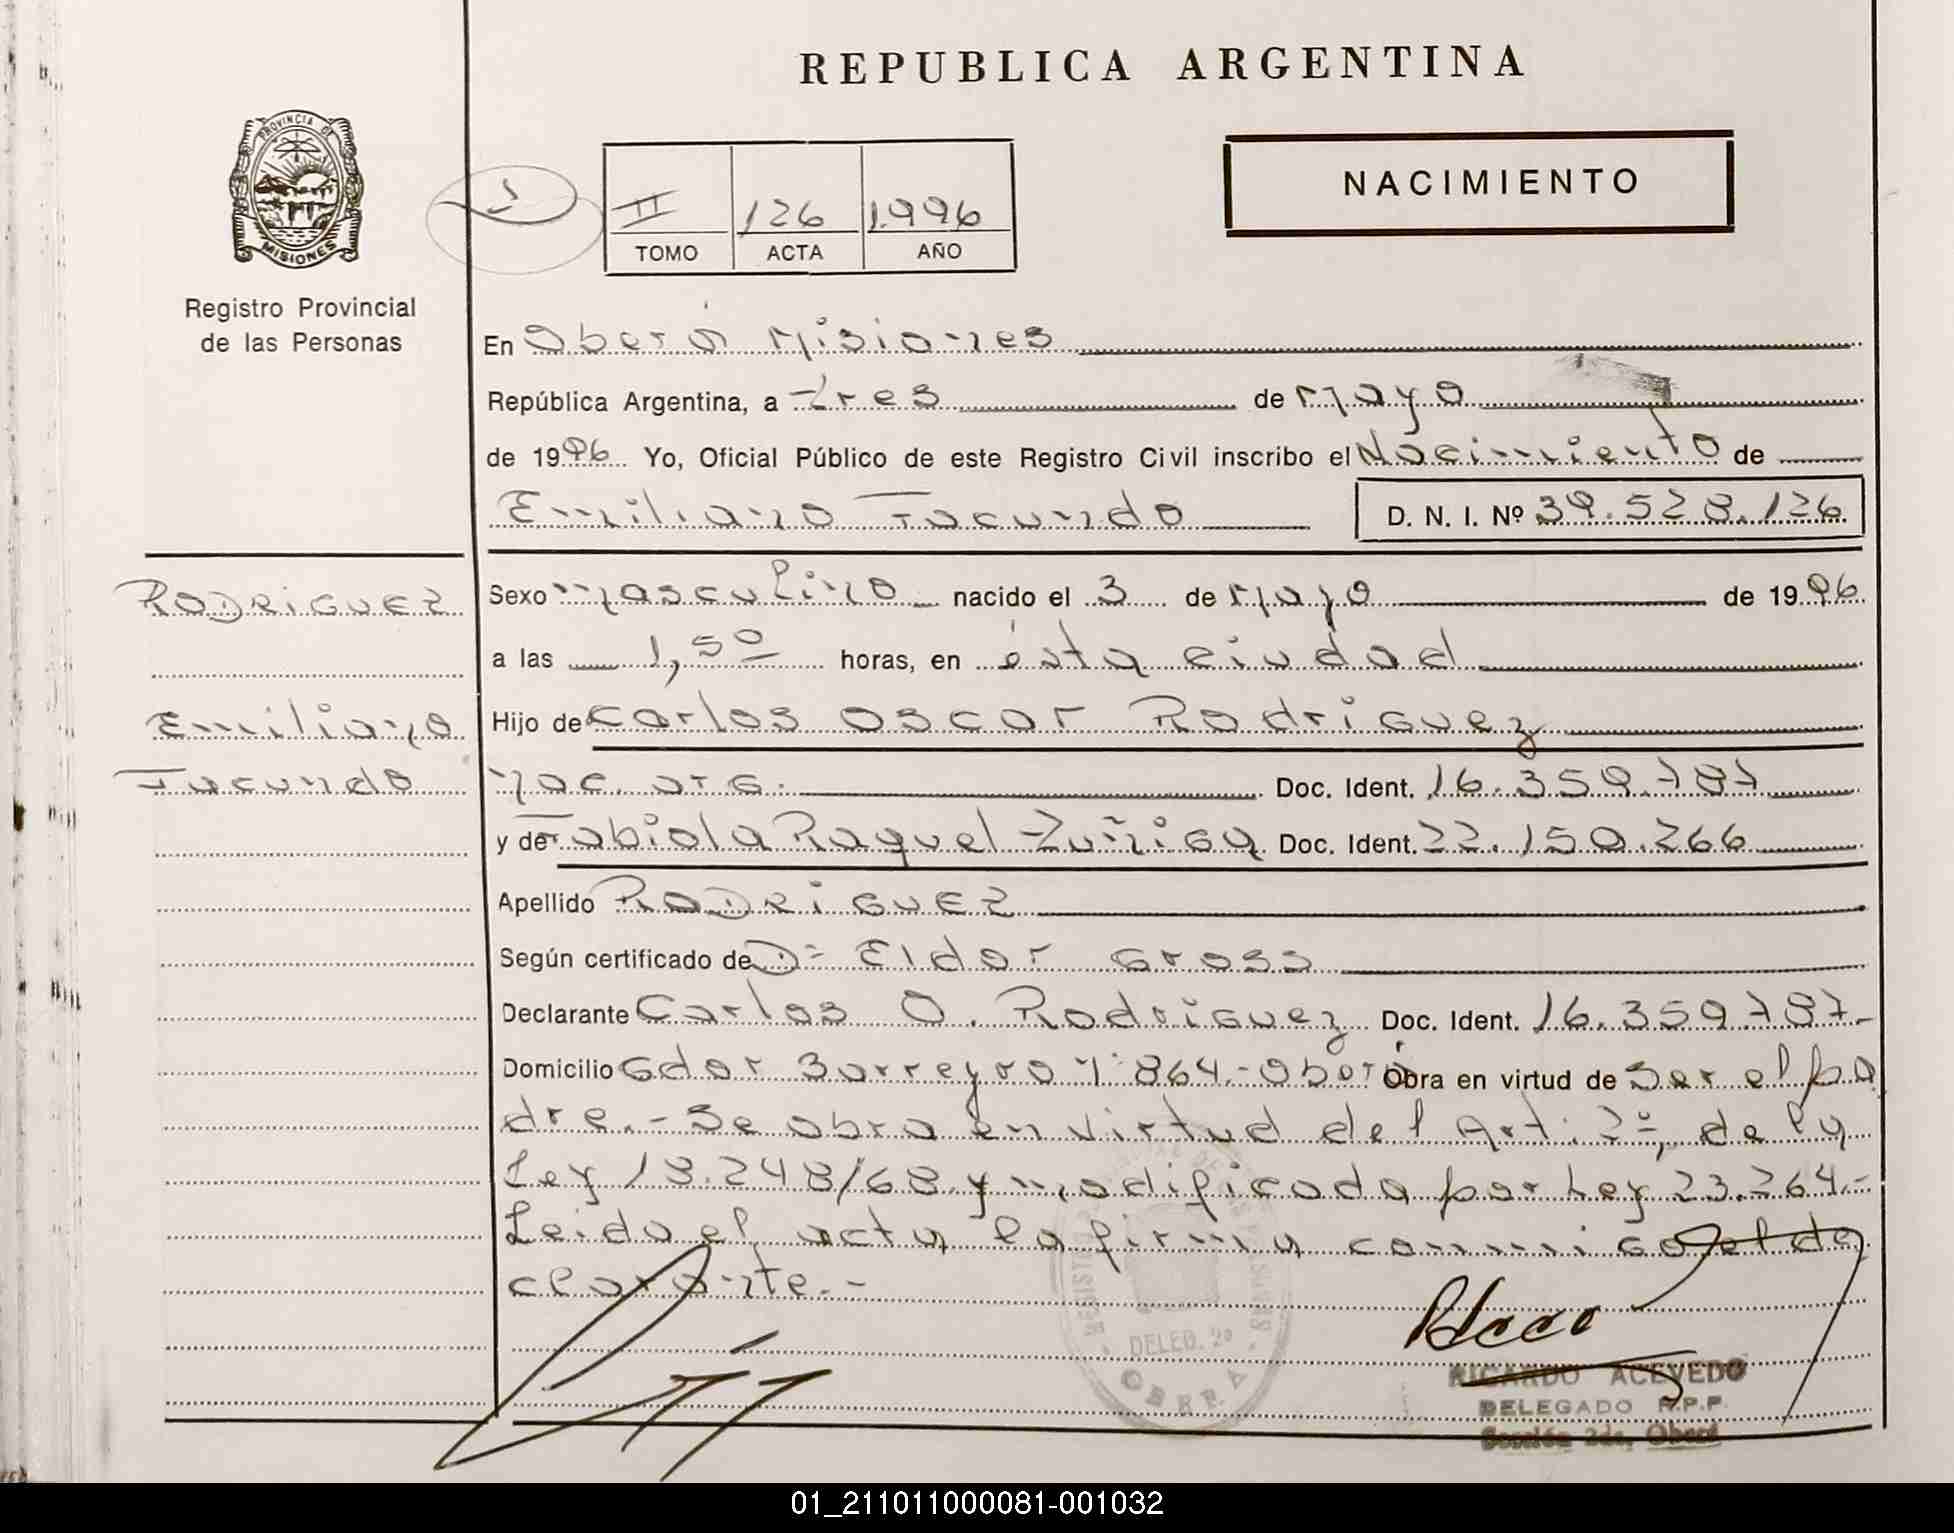 REPUBLICA ARGENTINA
PROVINCIA DE
MISIONES
Registro Provincial
de las Personas
II 126 1.996
TOMO ACTA AÑO
NACIMIENTO
En Oberá Misiones
República Argentina, a tres de mayo
de 1996 Yo, Oficial Público de este Registro Civil inscribo el Nacimiento de
Emiliano Facundo D. N. I. Nº 39.528.126
Rodriguez
Emiliano
Facundo
Sexo masculino nacido el 3 de mayo de 1996
a las 1,50 horas, en ésta ciudad
Hijo de Carlos Oscar Rodriguez
nac. arg. Doc. Ident. 16.359.787
y de Fabiola Raquel Zuñiga Doc. Ident. 22.150.266
Apellido RODRiGUEZ
Según certificado de Dr Eldor Gross
Declarante Carlos O. Rodriguez Doc. Ident. 16.359.787.-
Domicilio Gdor Barreyro Nº 864.- Oberá Obra en virtud de Ser el pa
dre.- Se obra en virtud del Art: 2º, de la
Ley 18.248/68 y modificada por Ley 23.264.-
Leida el acta la firma conmigo el de
clarante.-
DELEG. 2ª
OBERA
RICARDO ACEVEDO
DELEGADO R.P.P.
Sección 2da, Oberá
01_211011000081-001032